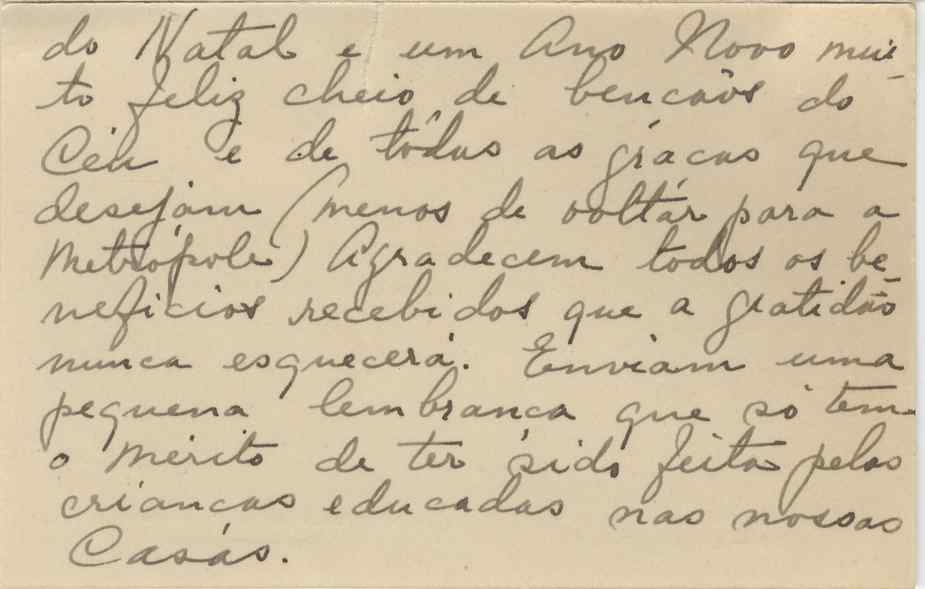 do Natal e um Ano Novo mui-
to feliz cheio de bencãos do
Céu e de tôdas as grácas que
desejam (menos de voltár para a
Metrópole) Agradecem todos os be-
neficios recebidos que a gratidão
nunca esquecerá. Enviam uma
pequena lembranca que só tem
o mérito de ter sido feita pelas
criancas educadas nas nossas
Casas.